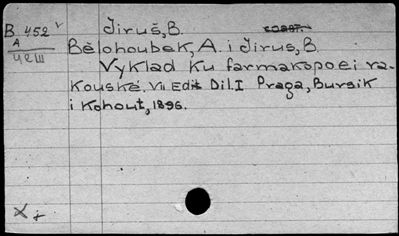 B 452 v Jiruš, B.
A
чеш Bělohoubek, A. i Jirus, B.
Vyklad Ku farmakopoei ra-
Kouské. VII Edit Dil. I Praga, Bursik
i Kohout, 1896.
X +